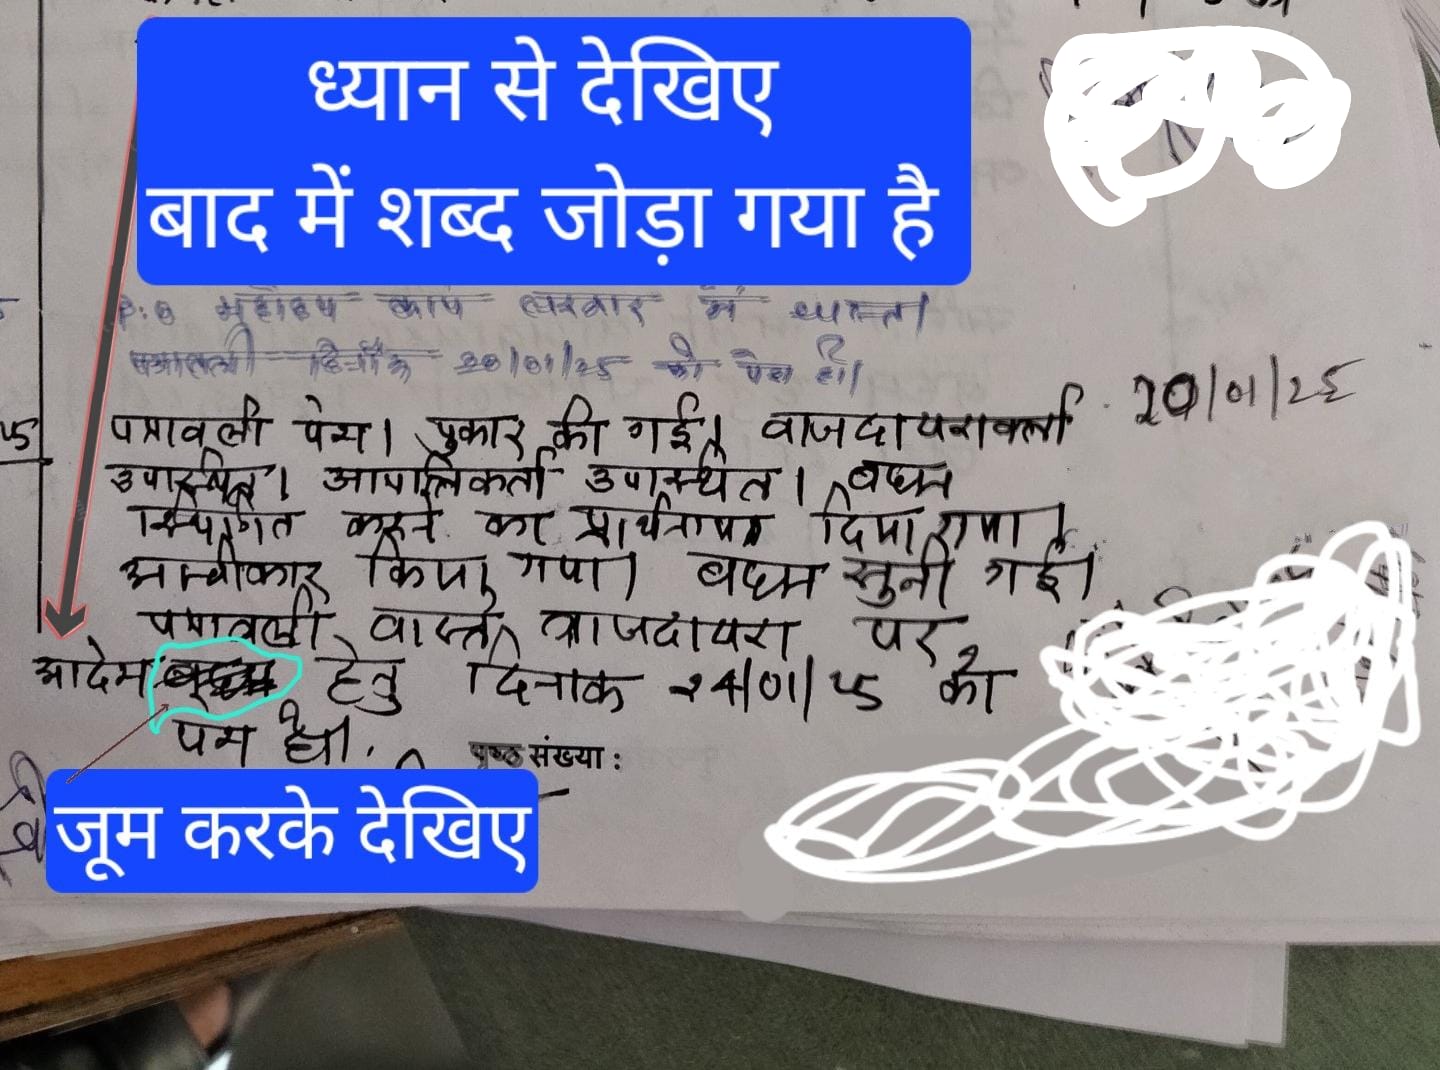 ध्यान से देखिए
बाद में शब्द जोड़ा गया है
महोदय कार्य सरकार में व्यस्त।
पत्रावली दिनाँक 20/01/25 को पेश हो।
20/01/25
पत्रावली पेश। पुकार की गई। वाजदायराकर्ता
उपस्थित। आपत्तिकर्ता उपस्थित। बहस
स्थगित करने का प्रार्थनापत्र दिया गया।
अस्वीकार किया गया। बहस सुनी गई।
पत्रावली वास्ते वाजदायरा पर
आदेश बहस हेतु दिनाक 24/01/25 को
पेश हो।
पृष्ठ संख्या :
जूम करके देखिए